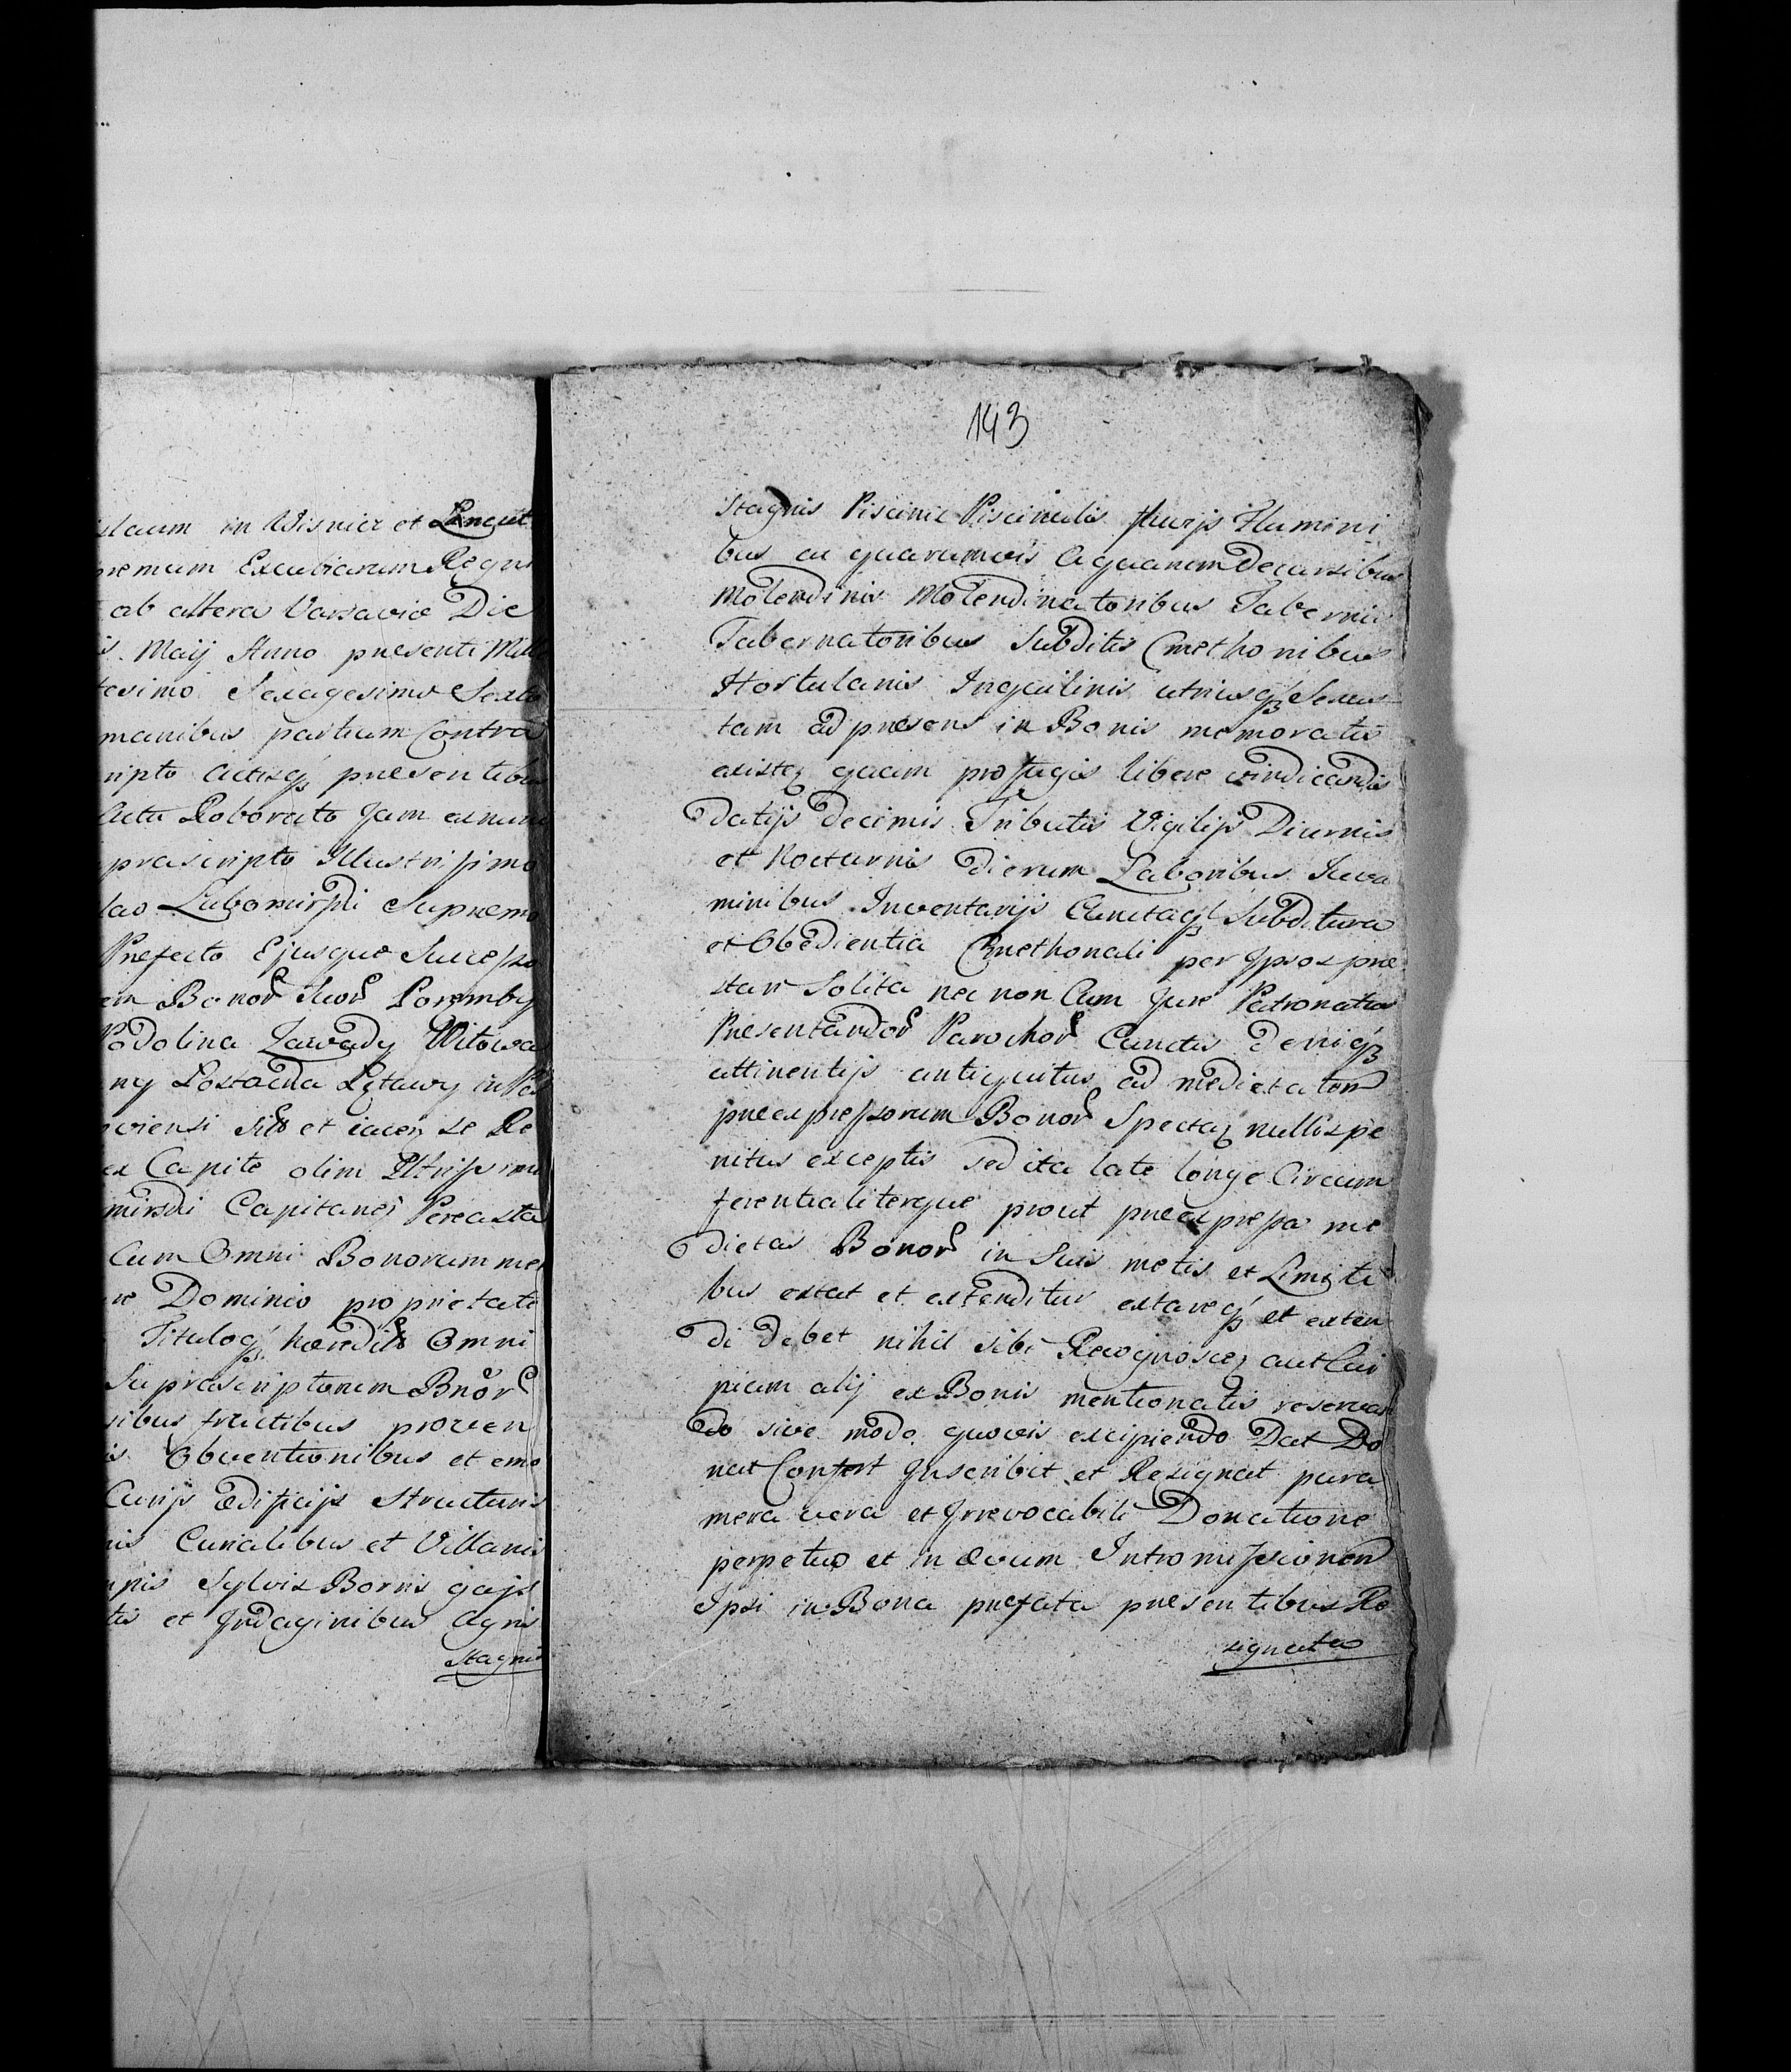 ulaum in Wisnicz et Lancut
premum Excubiarum Regni
ab altera Varsavie Die
is. Maij Anno presenti Mille
tesimo Sexagesimo Sexto
manibus partium Contra
ripto Actisq presentibus
Actu Roborato Jam exnunc
prascripto Illustrissimo
lao Lubomirski Supremo
Prefecto Ejusque Successo
em Bonor Suor Poremby
Podolina Zawady Witowa
ny Łostocka Lętawy in Pa
oviensi Sito et iacen se Re
ex Capite olim Illtrissimi
mirski Capitanej Pereasla
Cum Omni Bonorum me
re Dominio proprietate
Tituloq hæredito Omni
Suprascriptorum Bnor
sibus fructibus proven
is Obventionibus et emo
Curijs Ædificijs Structuris
nis Curialibus et Villanis
mpis Sylvis Borris gajs
tis et Indaginibus Agris
Stagnis
143
Stagnis Piscinis Piscinulis fluvijs Flumini
bus ac quarumvis Aquarum Decursibus
Molendinis Molendinatoribus Tabernis
Tabernatoribus Subditis Cmethonibus
Hortulanis Inquilinis utriusq Sexus
tam ad presens in Bonis memoratis
existen quam profugis libere vindicandis
Datijs Decimis Tributis Vigilijs Diurnis
et Nocturnis Dierum Laboribus Juva
minibus Inventarijs Cunctaq Subditura
et Obedientia Cmethonali per Ipsos præ
stari Solita nec non Cum Jure Patronatus
Presentandor Parochor Cunctis Deniq
attinentijs antiquitus ad medietatem
preexpressorum Bonor Spectan nullis pe
nitus exceptis sed ita late longe Circum
ferentialiterque prout preexpressa me
dietas Bonor in Suis metis et Limiti
bus extat et extenditur extareq et exten
di debet nihil sibi Recognoscen aut Cui
piam alij ex Bonis mentionatis reservan
do sive modo quovis excipiendo Dat Do
nat Confert Inscribit et Resignat pura
mera vera et Irrevocabili Donatione
perpetuo et in ævum Intromissionem
Ipsi in Bona prefata presentibus Re
signata